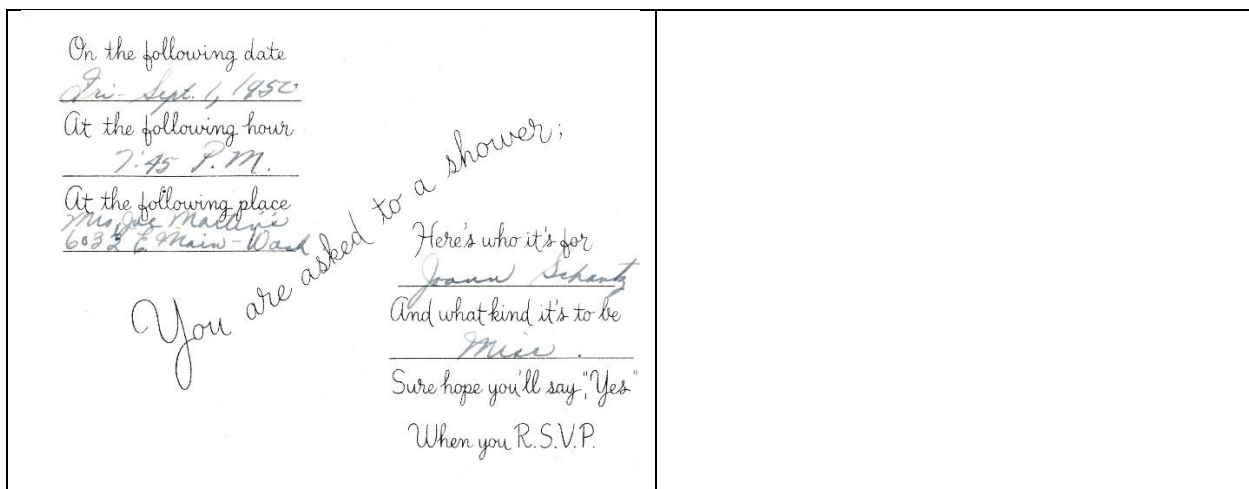 On the following date
Fri- Sept. 1, 1950
At the following hour
7:45 P.M.
At the following place
Mrs. Joe Martin's
603½ E Main - Wash
You are asked to a shower;
Here's who it's for
Joann Schantz
And what kind it's to be
Misc.
Sure hope you'll say, "Yes"
When you R.S.V.P.